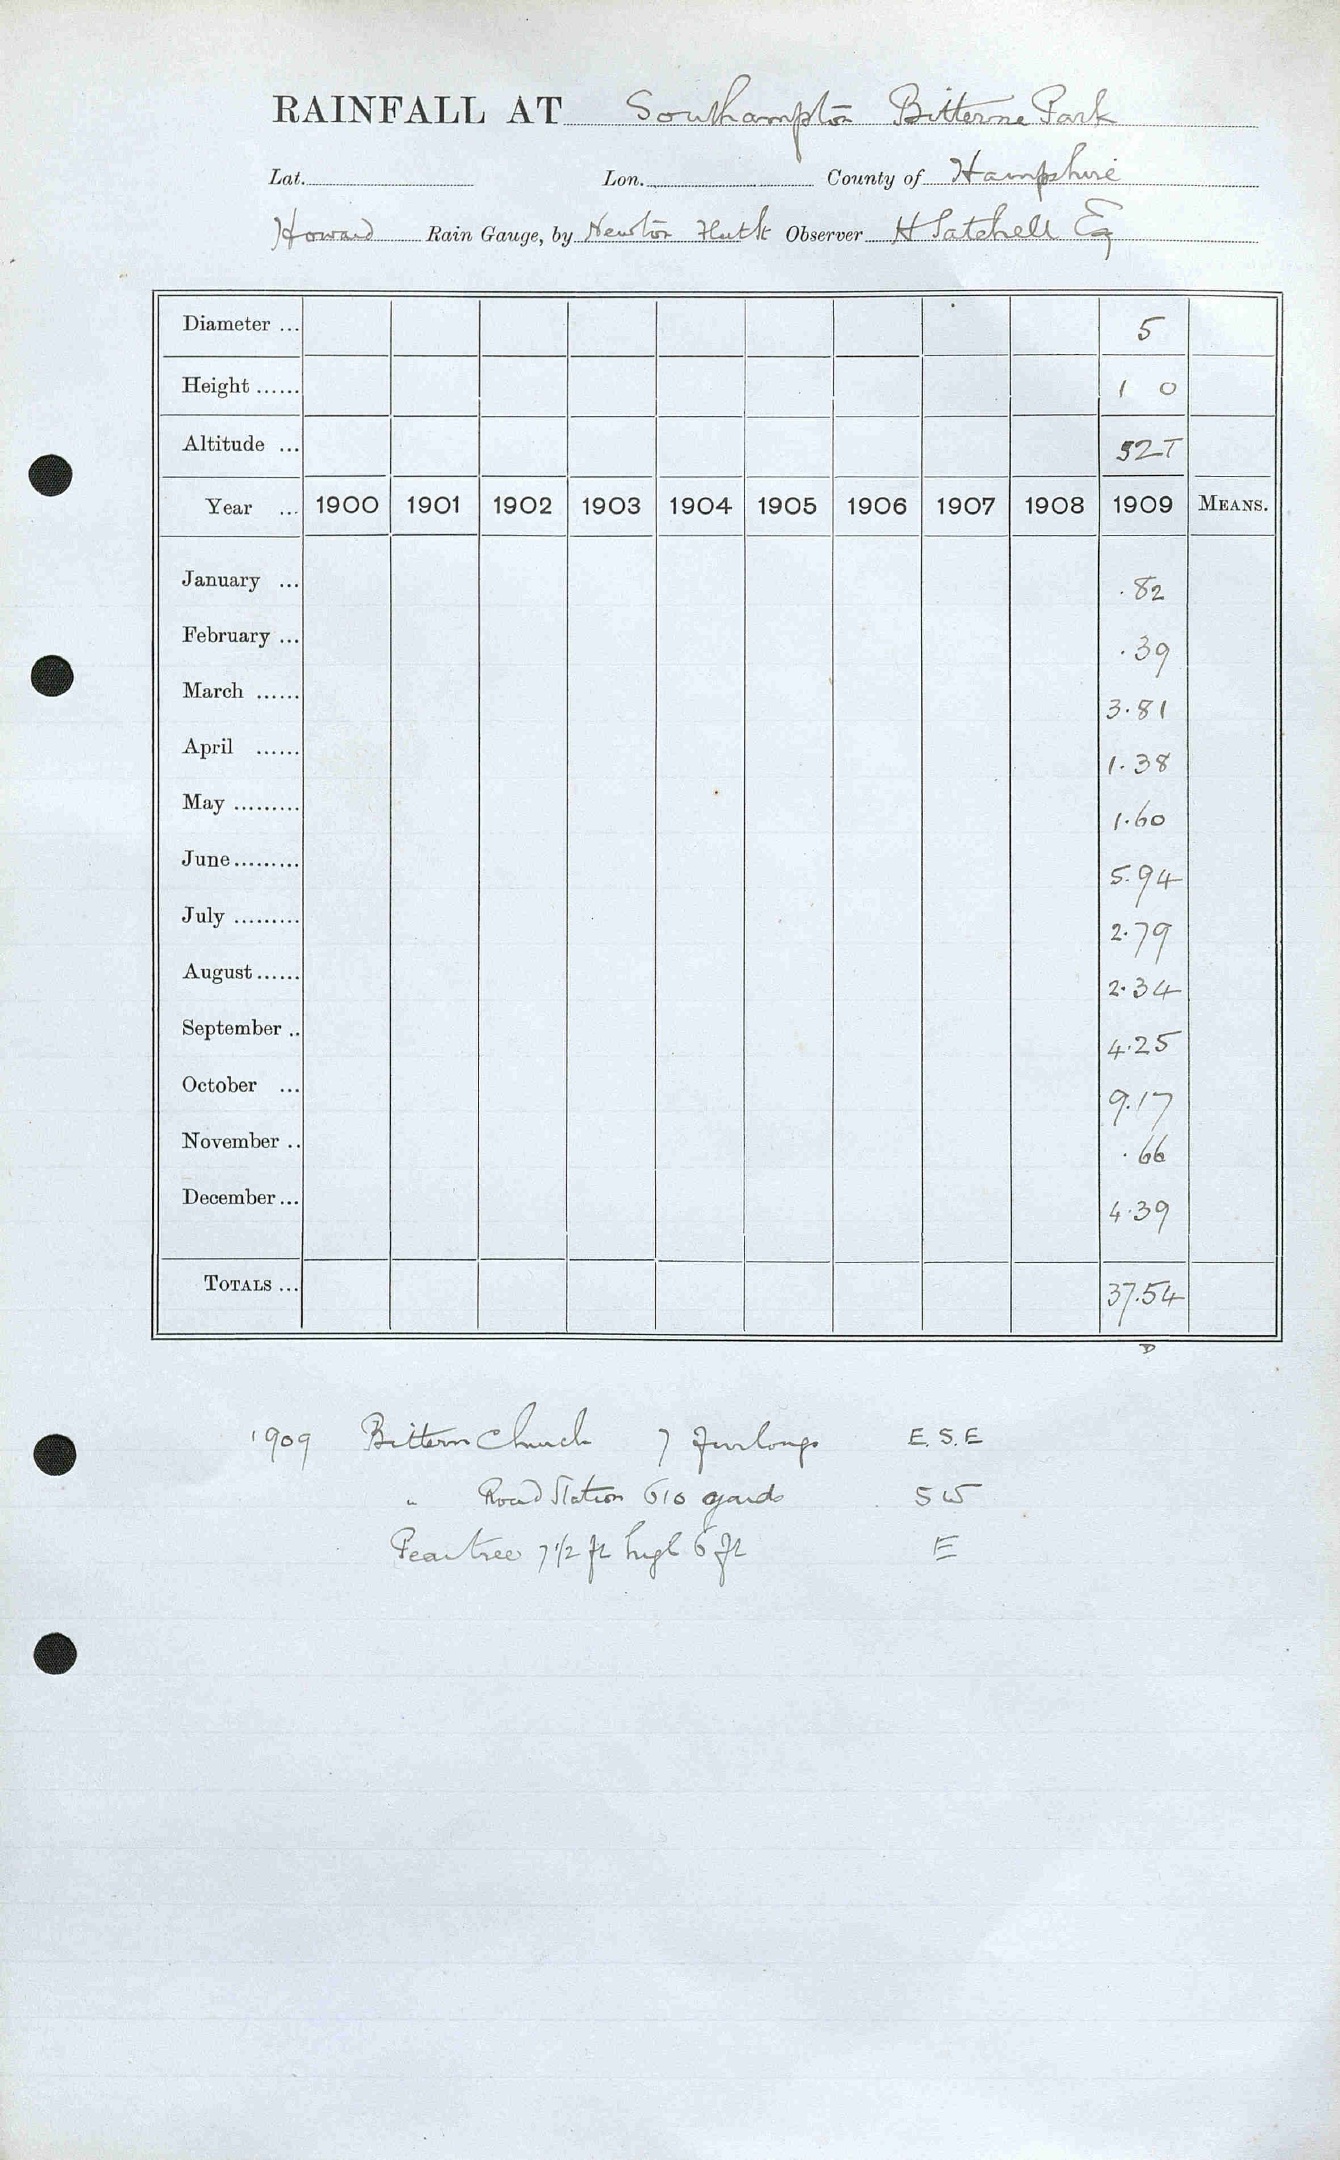 RAINFALL AT Southampton Bitterne Park
Lat. Lon. County of Hampshire
Howard Rain Gauge, by Newton Observer H Satchell Esq
Diameter ... 5
Height ...... 1 0
Altitude ... 52T
Year ... 1900 1901 1902 1903 1904 1905 1906 1907 1908 1909 MEANS.
January ... .82
February ... .39
March ...... 3.81
April ...... 1.38
May ......... 1.60
June......... 5.94
July ......... 2.79
August...... 2.34
September .. 4.25
October ... 9.17
November .. .66
December... 4.39
TOTALS ... 37.54
D
1909 Bittern Church 7 furlongs E.S.E
" Road Station 610 yards SW
Pear tree 7 1/2 ft high 6 ft E